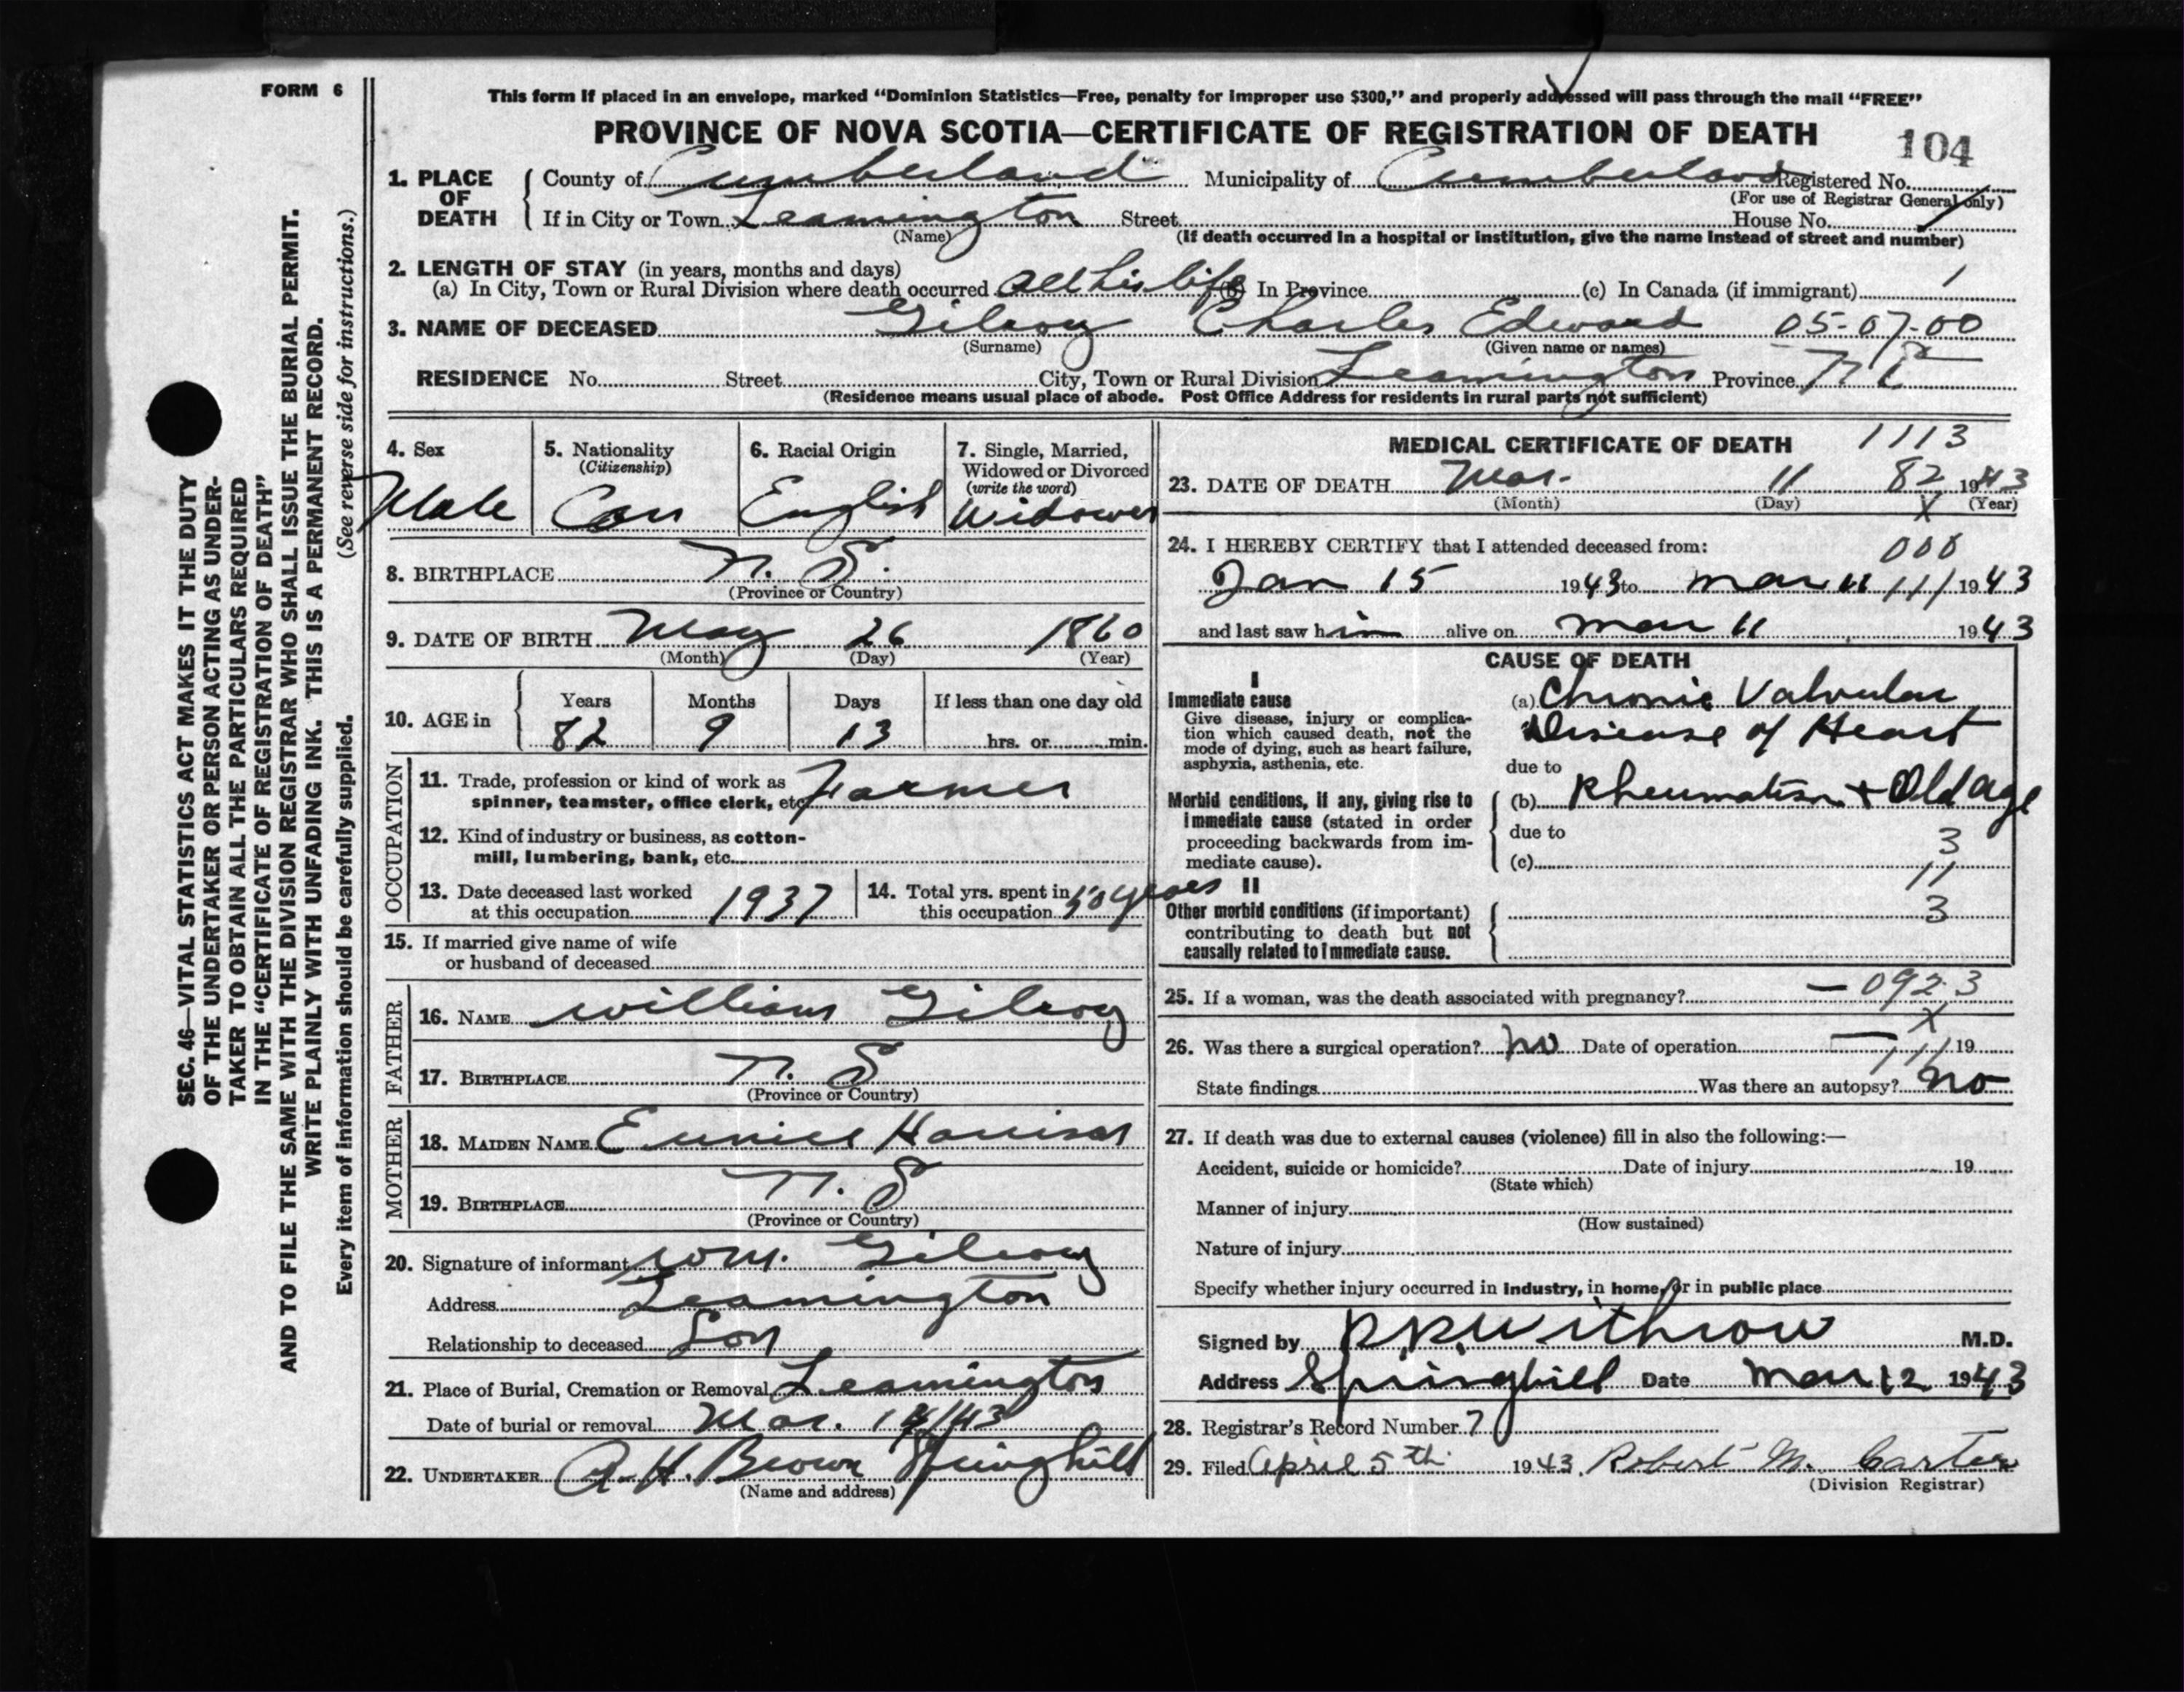 FORM 6
This form if placed in an envelope, marked “Dominion Statistics—Free, penalty for improper use $300,” and properly addressed will pass through the mail “FREE”
PROVINCE OF NOVA SCOTIA—CERTIFICATE OF REGISTRATION OF DEATH
104
1. PLACE OF DEATH
County of Cumberland Municipality of Cumberland Registered No.
(For use of Registrar General only)
If in City or Town Leamington Street House No.
(Name) (If death occurred in a hospital or institution, give the name instead of street and number)
2. LENGTH OF STAY (in years, months and days)
(a) In City, Town or Rural Division where death occurred All his life (b) In Province (c) In Canada (if immigrant) 1
3. NAME OF DECEASED Gilroy Charles Edward 05-07-00
(Surname) (Given name or names)
RESIDENCE No. Street City, Town or Rural Division Leamington Province N S
(Residence means usual place of abode. Post Office Address for residents in rural parts not sufficient)
4. Sex
Male
5. Nationality
(Citizenship)
Can
6. Racial Origin
English
7. Single, Married, Widowed or Divorced
(write the word)
Widower
8. BIRTHPLACE N. S.
(Province or Country)
9. DATE OF BIRTH May 26 1860
(Month) (Day) (Year)
10. AGE in
Years Months Days If less than one day old
82 9 13 hrs. or min.
OCCUPATION
11. Trade, profession or kind of work as
spinner, teamster, office clerk, etc. Farmer
12. Kind of industry or business, as cotton-
mill, lumbering, bank, etc.
13. Date deceased last worked
at this occupation 1937
14. Total yrs. spent in
this occupation 50 years
15. If married give name of wife
or husband of deceased
FATHER
16. NAME William Gilroy
17. BIRTHPLACE N. S
(Province or Country)
MOTHER
18. MAIDEN NAME Eunice Harrison
19. BIRTHPLACE N. S
(Province or Country)
20. Signature of informant Wm. Gilroy
Address Leamington
Relationship to deceased Son
21. Place of Burial, Cremation or Removal Leamington
Date of burial or removal Mar. 14/43
22. UNDERTAKER A. H. Brown Springhill
(Name and address)
MEDICAL CERTIFICATE OF DEATH 1113
23. DATE OF DEATH Mar. 11 82 1943
(Month) (Day) X (Year)
24. I HEREBY CERTIFY that I attended deceased from: 000
Jan 15 1943 to Mar 11 111 1943
and last saw him alive on Mar 11 1943
CAUSE OF DEATH
I
Immediate cause
Give disease, injury or complica-
tion which caused death, not the
mode of dying, such as heart failure,
asphyxia, asthenia, etc.
(a) Chronic Valvular
Disease of Heart
due to
Morbid conditions, if any, giving rise to
immediate cause (stated in order
proceeding backwards from im-
mediate cause).
(b) Rheumatism + Old age
due to
3
(c)
11
II
Other morbid conditions (if important)
contributing to death but not
causally related to immediate cause.
3
25. If a woman, was the death associated with pregnancy? — 0923
X
26. Was there a surgical operation? No Date of operation — 111 19
State findings Was there an autopsy? No
27. If death was due to external causes (violence) fill in also the following:—
Accident, suicide or homicide? Date of injury 19
(State which)
Manner of injury
(How sustained)
Nature of injury
Specify whether injury occurred in industry, in home, or in public place
Signed by Withrow M.D.
Address Springhill Date Mar 12 1943
28. Registrar's Record Number 7
29. Filed April 5th 1943. Robert M. Carter
(Division Registrar)
SEC. 46—VITAL STATISTICS ACT MAKES IT THE DUTY
OF THE UNDERTAKER OR PERSON ACTING AS UNDER-
TAKER TO OBTAIN ALL THE PARTICULARS REQUIRED
IN THE “CERTIFICATE OF REGISTRATION OF DEATH”
AND TO FILE THE SAME WITH THE DIVISION REGISTRAR WHO SHALL ISSUE THE BURIAL PERMIT.
WRITE PLAINLY WITH UNFADING INK. THIS IS A PERMANENT RECORD.
Every item of information should be carefully supplied. (See reverse side for instructions.)